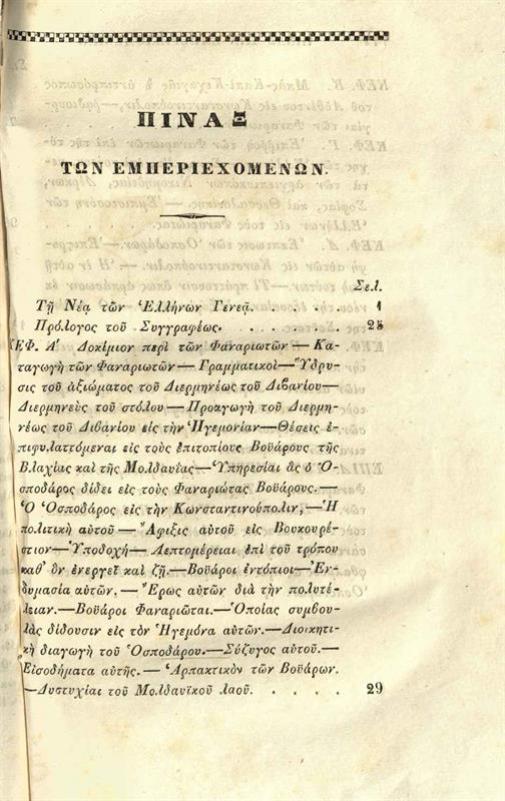 ΠΙΝΑΞ
ΤΩΝ ΕΜΠΕΡΙΕΧΟΜΕΝΩΝ.
Σελ.
Τῇ Νέᾳ τῶν Ἑλλήνων Γενεᾷ. . . . . . 1
Πρόλογος τοῦ Συγγραφέως. . . . . . . 25
ΚΕΦ. Α' Δοκίμιον περὶ τῶν Φαναριωτῶν — Κα-
ταγωγὴ τῶν Φαναριωτῶν — Γραμματικοὶ — Ἵδρυ-
σις τοῦ ἀξιώματος τοῦ Διερμηνέως τοῦ Διβανίου —
Διερμηνεὺς τοῦ στόλου — Προαγωγὴ τοῦ Διερμη-
νέως τοῦ Διβανίου εἰς τὴν Ἡγεμονίαν — Θέσεις ἐ-
πιφυλαττόμεναι εἰς τοὺς ἐπιτοπίους Βοϋάρους τῆς
Βλαχίας καὶ τῆς Μολδαυΐας — Ὑπηρεσίαι ἃς ὁ Ὁ-
σποδάρος δίδει εἰς τοὺς Φαναριώτας Βοϋάρους. —
Ὁ Ὁσποδάρος εἰς τὴν Κωνσταντινούπολιν, — Ἡ
πολιτικὴ αὐτοῦ — Ἄφιξις αὐτοῦ εἰς Βουκουρέ-
στιον — Ὑποδοχὴ — Λεπτομέρειαι ἐπὶ τοῦ τρόπου
καθ' ὃν ἐνεργεῖ καὶ ζῇ. — Βοϋάροι ἐντόπιοι — Ἐν-
δυμασία αὐτῶν. — Ἔρως αὐτῶν διὰ τὴν πολυτέ-
λειαν. — Βοϋάροι Φαναριῶται. — Ὁποίας συμβου-
λὰς δίδουσιν εἰς τὸν Ἡγεμόνα αὐτῶν. — Διοικητι-
κὴ διαγωγὴ τοῦ Ὁσποδάρου. — Σύζυγος αὐτοῦ. —
Εἰσοδήματα αὐτῆς. — Ἁρπακτικὸν τῶν Βοϋάρων.
— Δυστυχίαι τοῦ Μολδαυϊκοῦ λαοῦ. . . . . 29